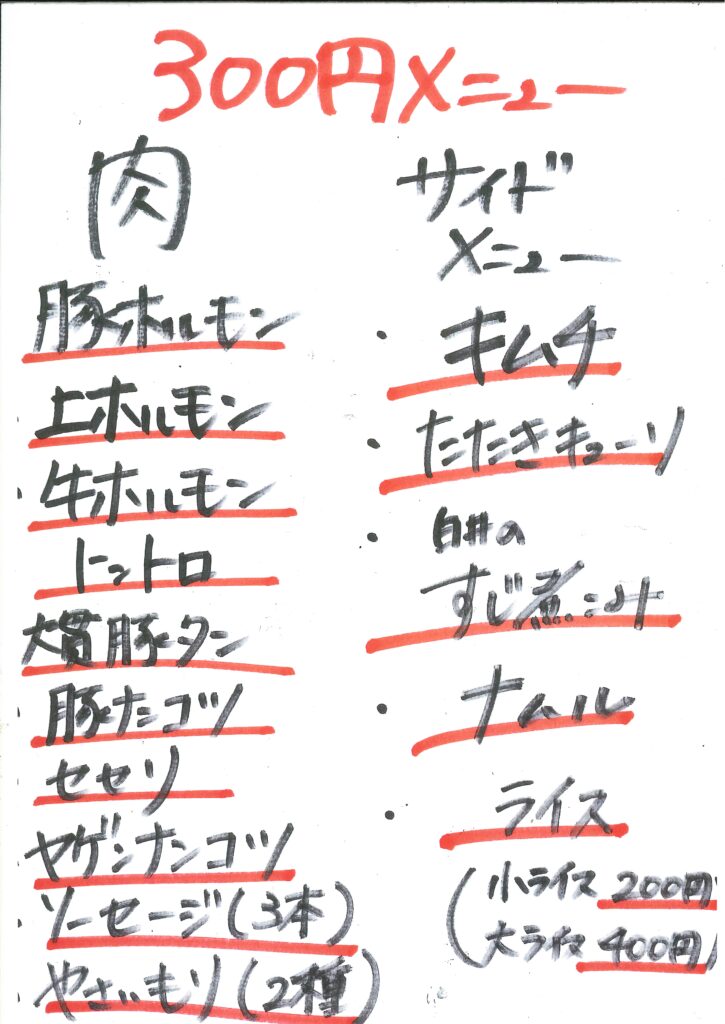 300円メニュー
肉
豚ホルモン
上ホルモン
牛ホルモン
トントロ
大貫豚タン
豚ナンコツ
セセリ
ヤゲンナンコツ
ソーセージ(3本)
やさいもり(2種)
サイド
メニュー
・キムチ
・たたきキューリ
・白井の
すじ煮こみ
・ナムル
・ライス
(小ライス 200円
大ライス 400円)